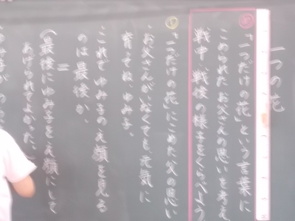 一つの花
「一つだけの花」という言葉に
こめられたお父さんの思いを考え
戦中、戦後の様子をくらべよう
①「一つだけの花」にこめた父の思い
お父さんがいなくても元気に
育ってね、ゆみ子。
これでゆみ子の笑顔を見る
のは最後か。
＝
最後にゆみ子を笑顔にして
あげられてよかった。